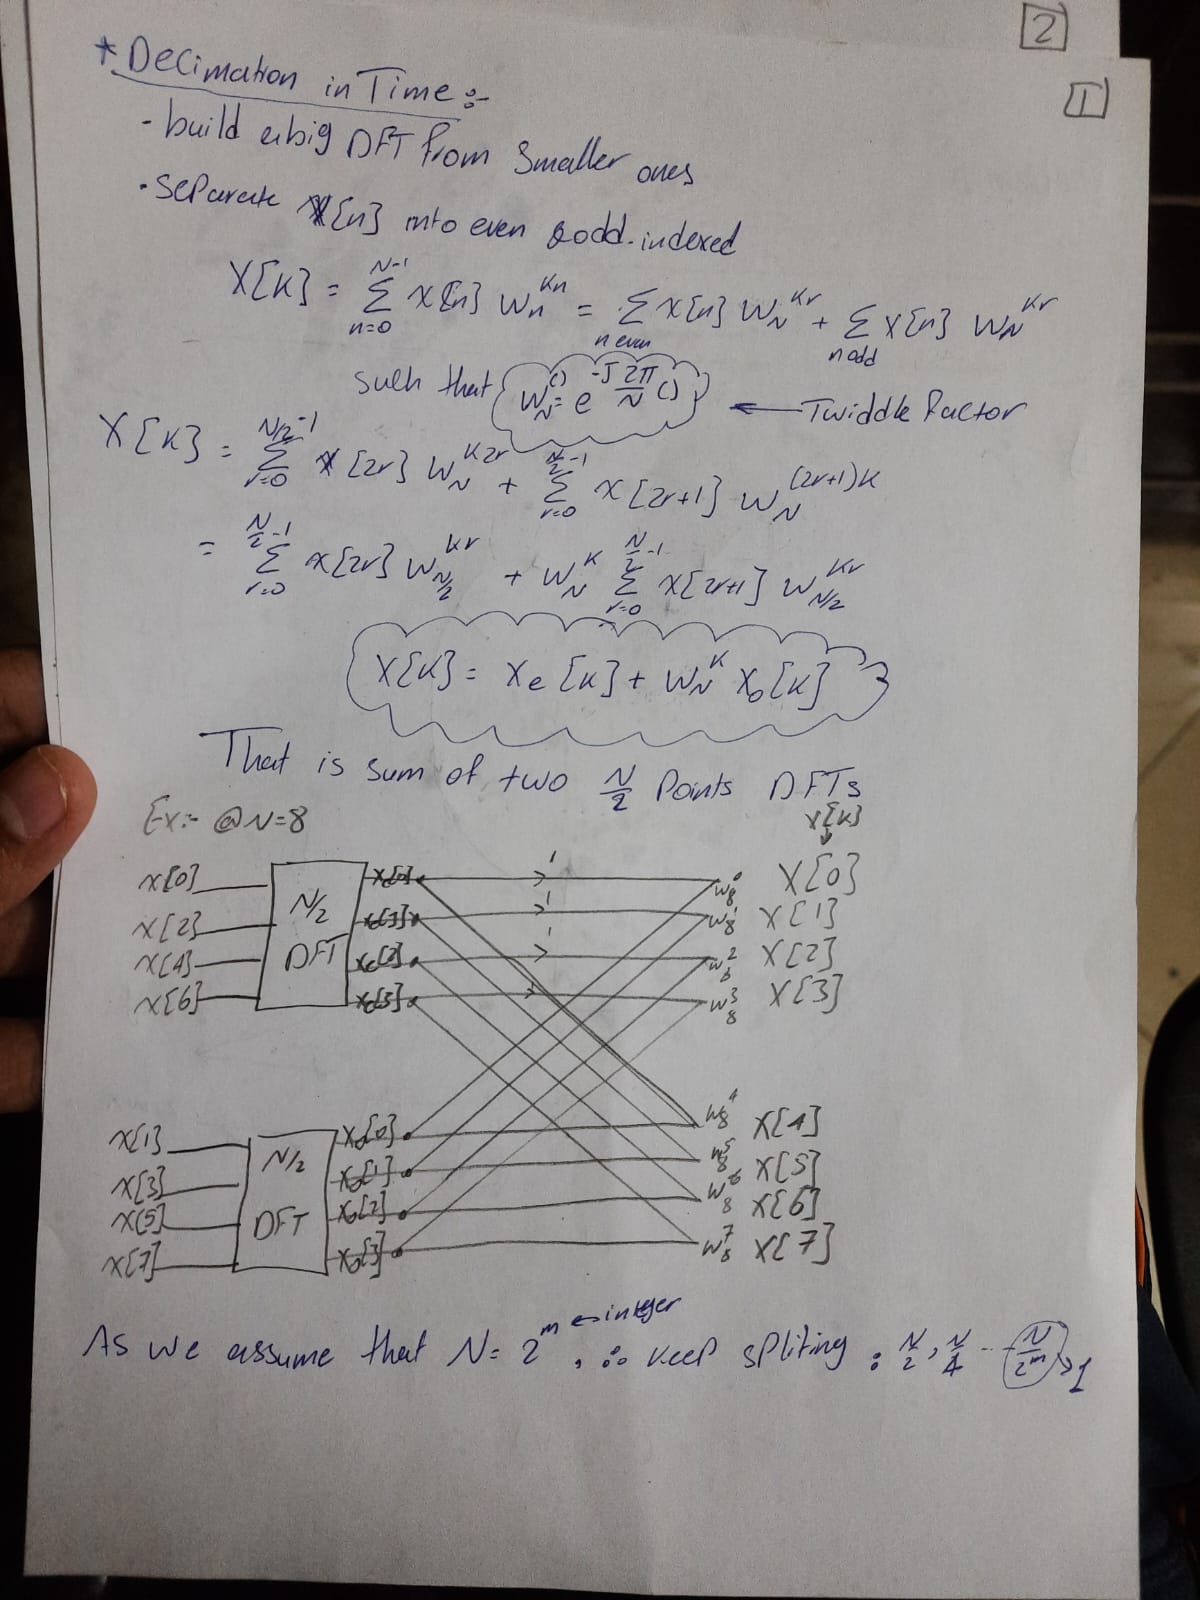 2
1
* Decimation in Time:-
- build a big DFT from smaller ones
• Separate x[n] into even & odd-indexed
X[k] = Σ_{n=0}^{N-1} x[n] W_n^{kn} = Σ_{n even} x[n] W_N^{kr} + Σ_{n odd} x[n] W_N^{kr}
such that W_N^{()} = e^{-J 2π/N ()} ← Twiddle factor
X[k] = Σ_{r=0}^{N/2-1} x[2r] W_N^{k2r} + Σ_{r=0}^{N/2-1} x[2r+1] W_N^{(2r+1)k}
= Σ_{r=0}^{N/2-1} x[2r] W_{N/2}^{kr} + W_N^k Σ_{r=0}^{N/2-1} x[2r+1] W_{N/2}^{kr}
X[k] = Xe[k] + W_N^k Xo[k]
That is sum of two N/2 Points DFTs
Ex:- @N=8
X[k]
x[0] 1 W_8^0 X[0]
x[2] N/2 1 W_8^1 X[1]
x[4] DFT Xe[2] 1 W_8^2 X[2]
x[6] Xe[3] W_8^3 X[3]
x[1] Xo[0] W_8^4 X[4]
x[3] N/2 Xo[1] W_8^5 X[5]
x[5] DFT Xo[2] W_8^6 X[6]
x[7] Xo[3] W_8^7 X[7]
As we assume that N = 2^m ← integer, ∴ keep spliting : N/2, N/4 -- N/2^m → 1